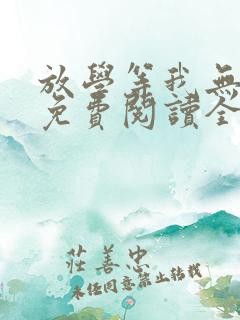 放學等我無
免費閱讀全
莊善忠
未經同意禁止轉載